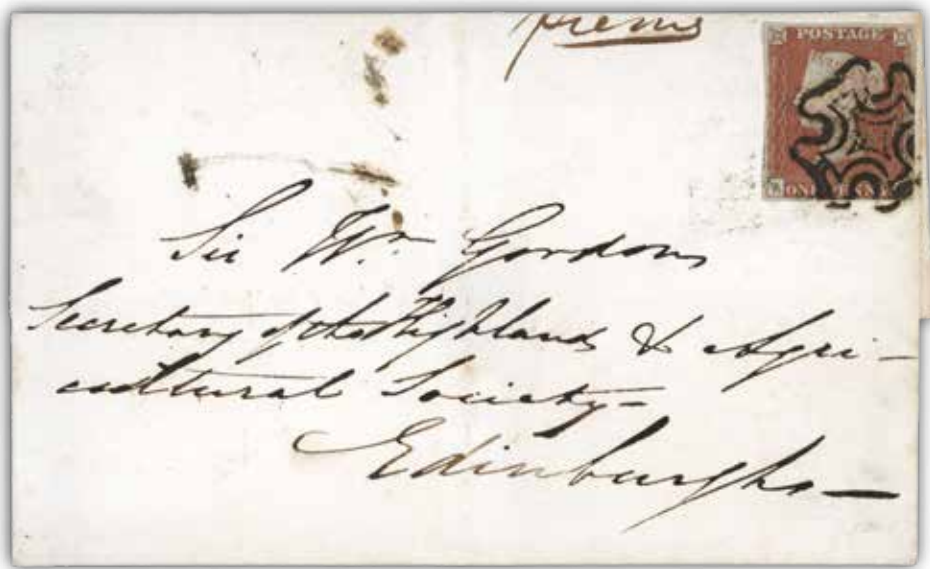 Prems
POSTAGE
ONE PENNY
Sir Wm. Gordon
Secretary of the Highland & Agri-
cultural Society-
Edinburgh-